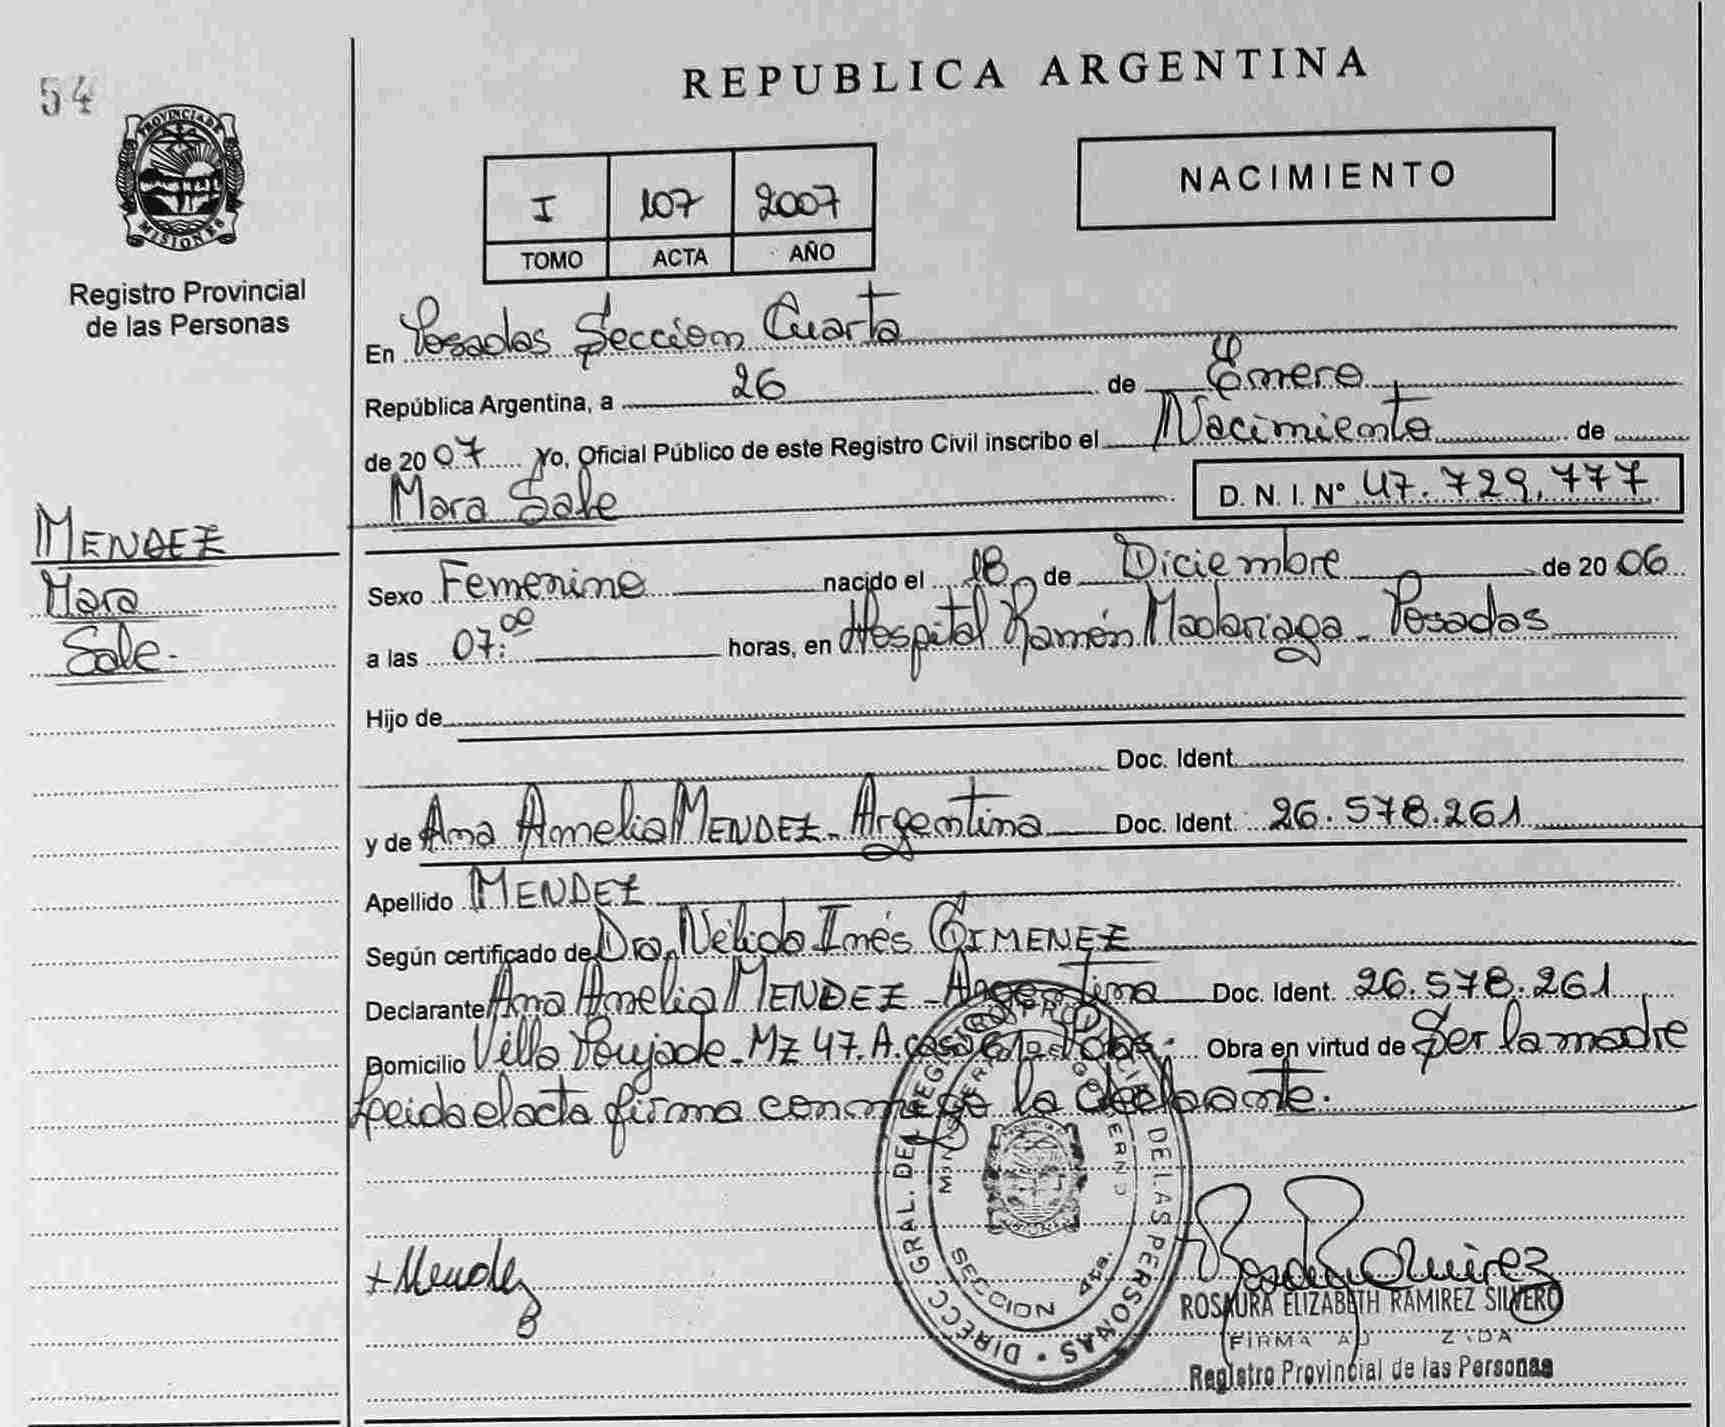 54
PROVINCIA DE
MISIONES
Registro Provincial
de las Personas
MENDEZ
Mara
Sale.
REPUBLICA ARGENTINA
I 107 2007
TOMO ACTA AÑO
NACIMIENTO
En Posadas Sección Cuarta
República Argentina, a 26 de Enero
de 2007 Yo, Oficial Público de este Registro Civil inscribo el Nacimiento de
Mara Sale D. N. I. Nº 47.729.777
Sexo Femenino nacido el 18 de Diciembre de 2006
a las 07:00 horas, en Hospital Ramón Madariaga - Posadas
Hijo de
Doc. Ident.
y de Ana Amelia MENDEZ - Argentina Doc. Ident. 26.578.261
Apellido MENDEZ
Según certificado de Dra. Nélida Inés GIMENEZ
Declarante Ana Amelia MENDEZ - Argentina Doc. Ident. 26.578.261
Domicilio Villa Poujade - Mz 47. A. casa Pdas. Obra en virtud de Ser la madre
Leida el acta firma conmigo la declarante.
DIRECC. GRAL. DEL REGISTRO PROVINCIAL DE LAS PERSONAS
MINISTERIO GOBIERNO
SECCION 4ta.
Mendez
ROSAURA ELIZABETH RAMIREZ SILVERO
FIRMA
Registro Provincial de las Personas